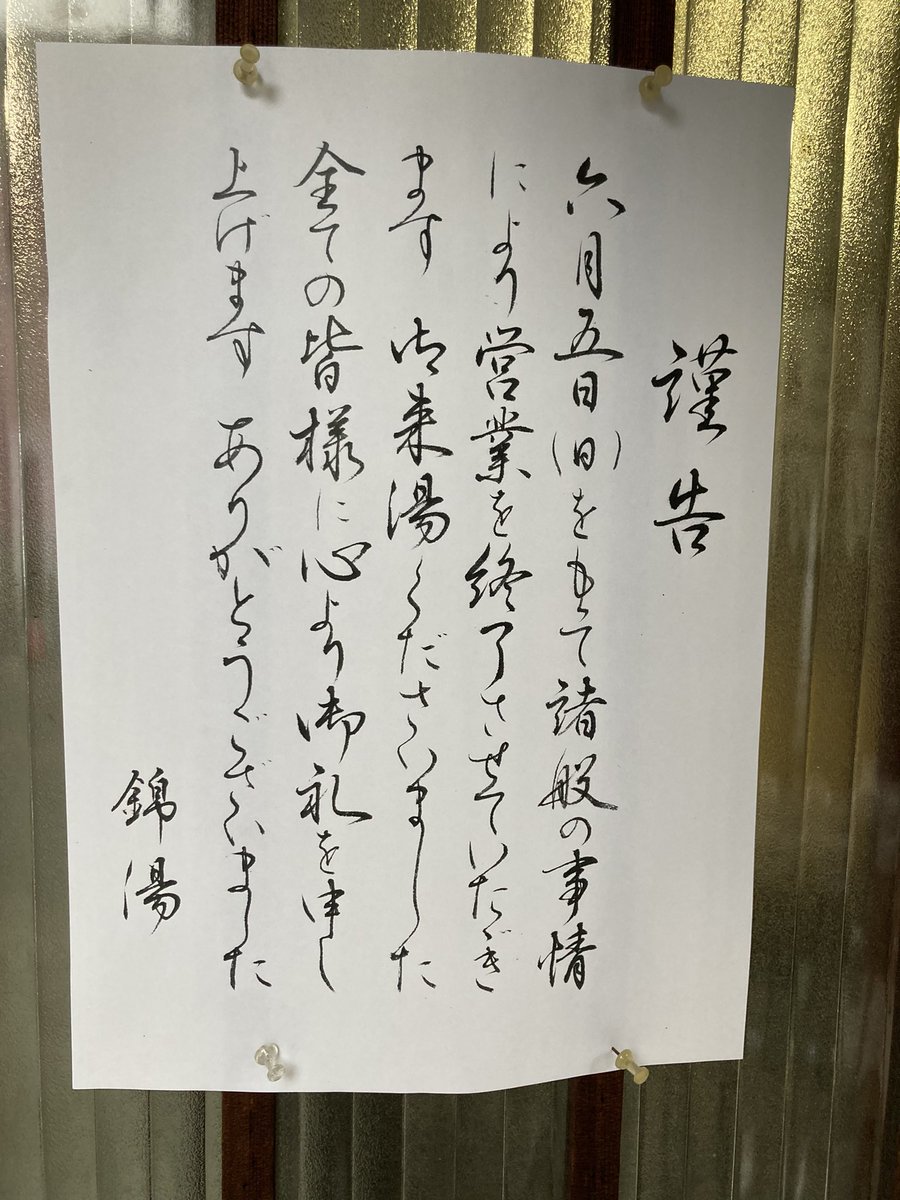 謹告
六月五日(日)をもって諸般の事情
により営業を終了させていただき
ます 御来湯くださいました
全ての皆様に心より御礼を申し
上げます ありがとうございました
錦湯